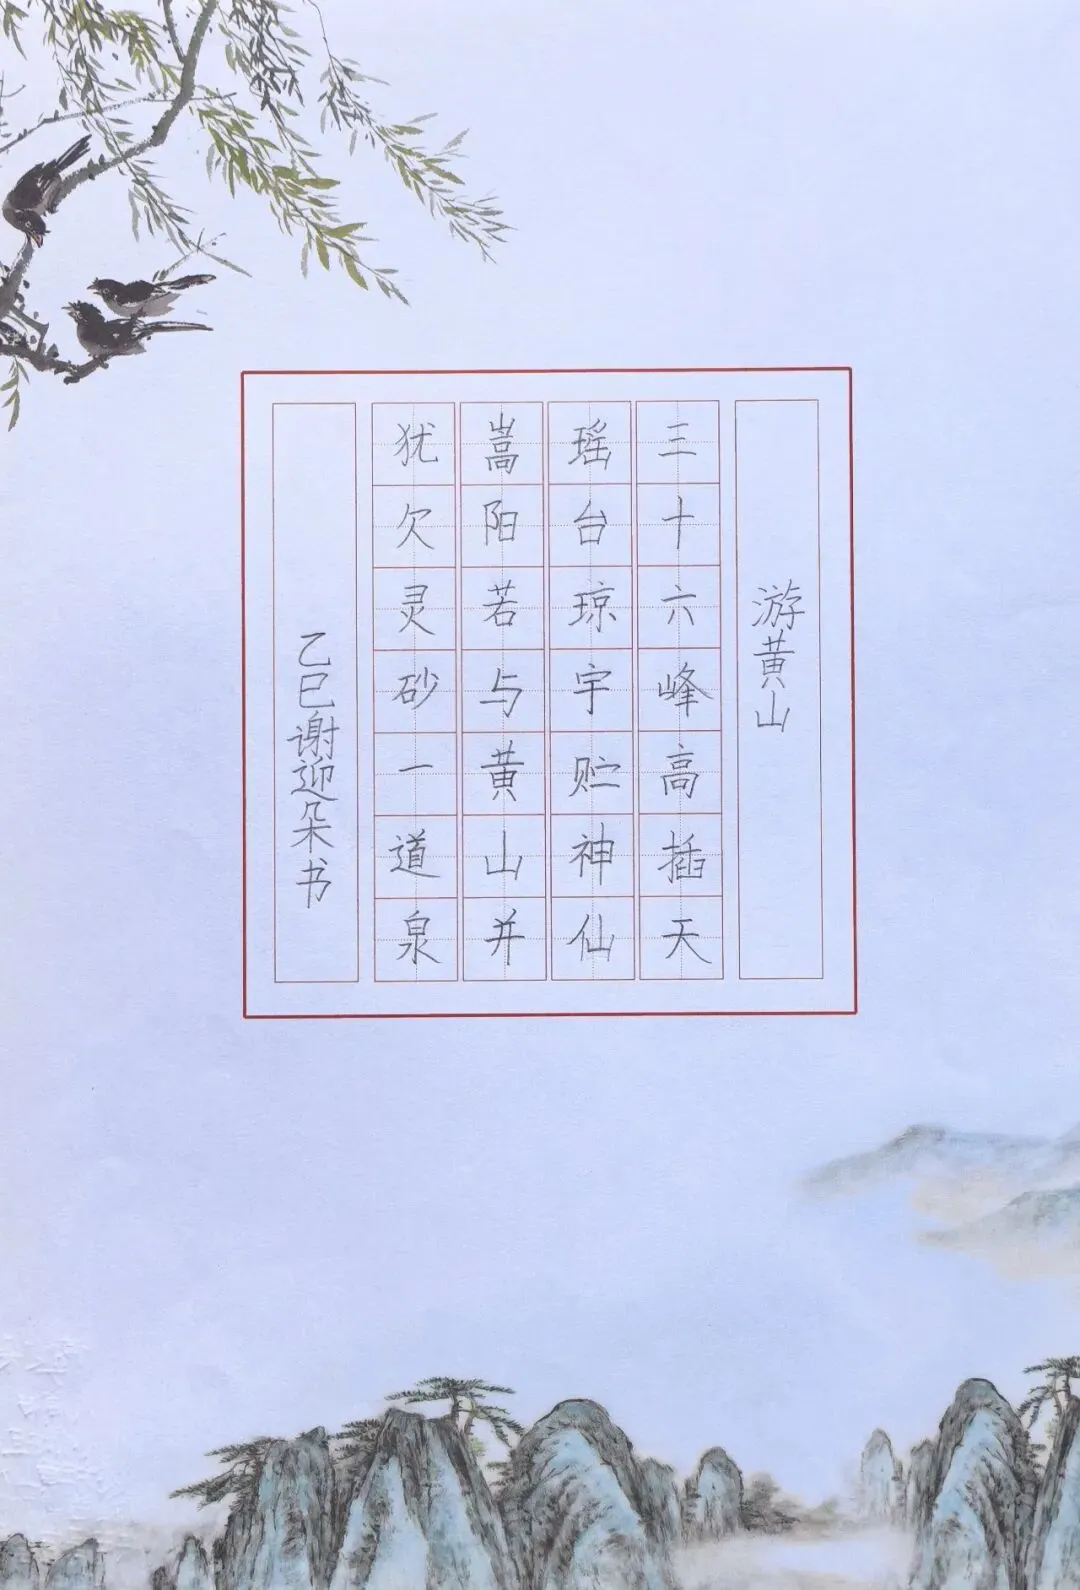 游黄山
三十六峰高插天
瑶台琼宇贮神仙
嵩阳若与黄山并
犹欠灵砂一道泉
乙巳谢迎朵书